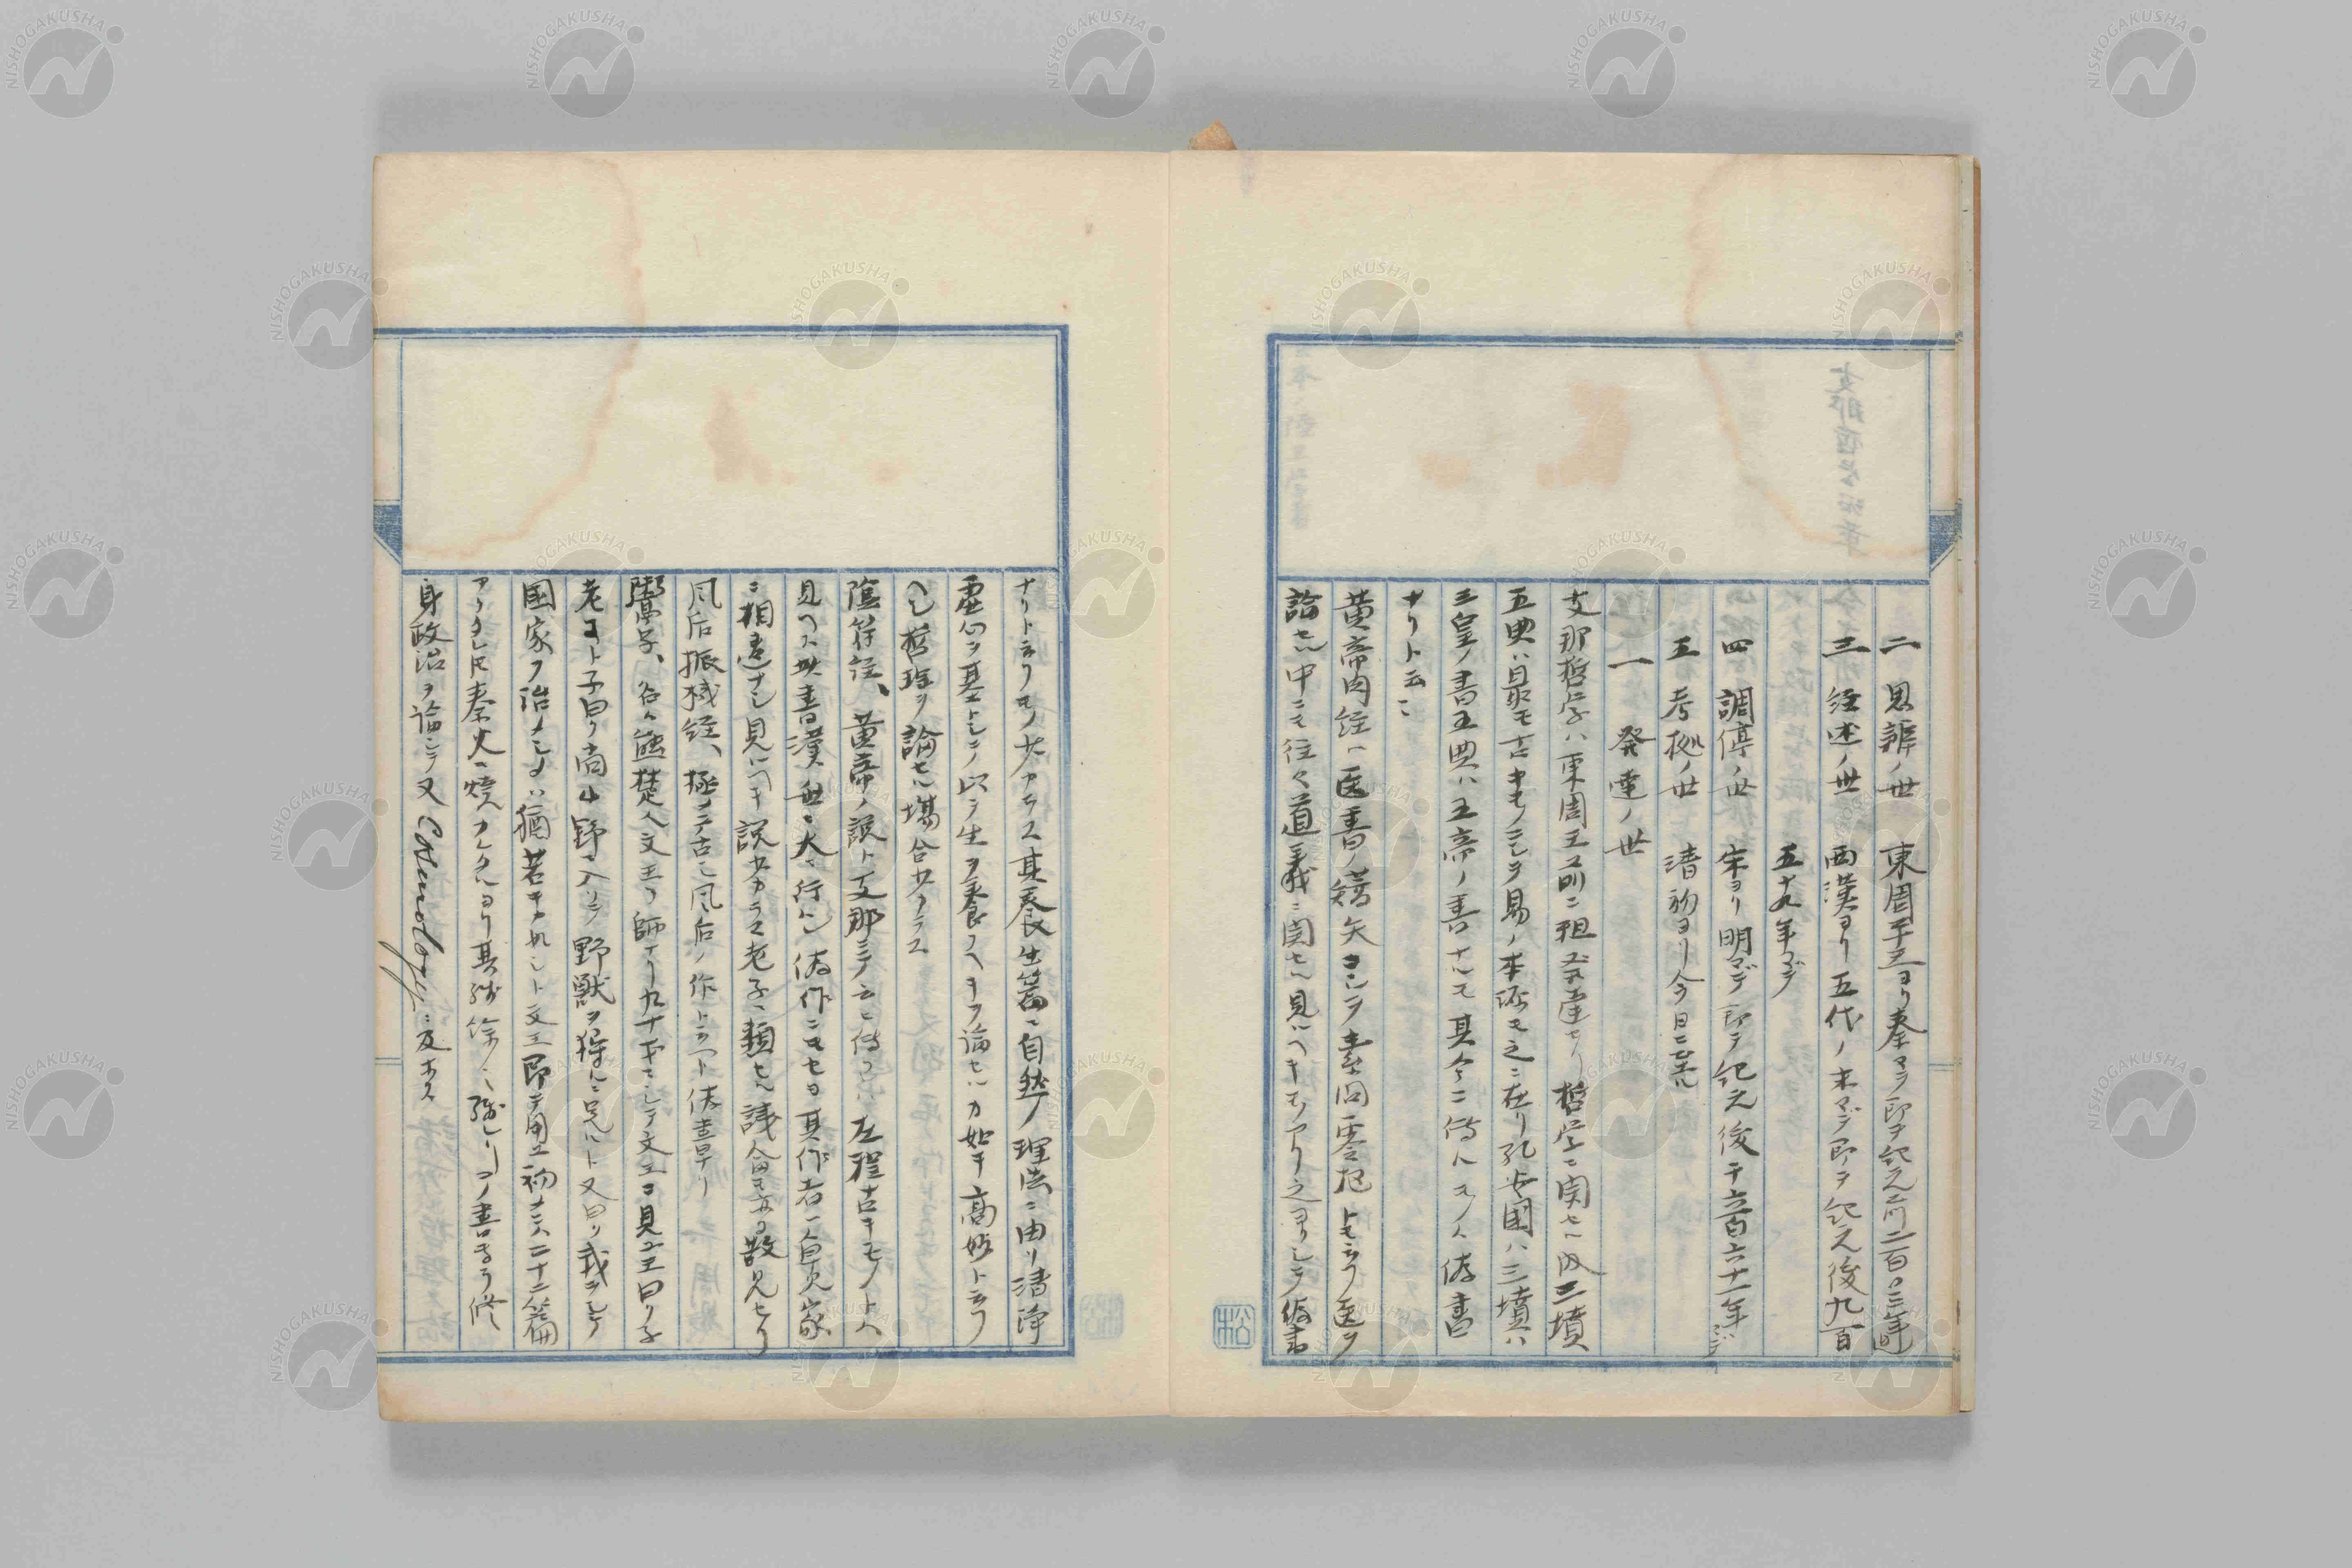 二 思辨ノ世 東周平王ヨリ秦マテ即チ紀元前二百〇三年
三 経述ノ世 西漢ヨリ五代ノ末マデ即チ紀元後九百
五十九年マデ
四 調停ノ世 宋ヨリ明マデ即チ紀元後千六百六十一年マデ
五 考拠ノ世 清初ヨリ今日ニ至ル
一 発達ノ世
支那哲学ハ東周以前ニ粗発達セリ哲学ニ関セル 三墳
五典ハ最モ古キモノニシテ易ノ本源モ之ニ在リ孔安国ハ三墳ハ
三皇ノ書五典ハ五帝ノ書ナルモ其今ニ傳ルモノハ偽書
ナリト云フ
黄帝内経ハ医書ノ嚆矢ニシテ素問霊枢トモ云フ医ヲ
論セル中ニモ往々道義ニ関セル見ルヘキモノアリ之ヨリシテ偽書
ナリト云フモノ少カラス其養生篇ニ自然ノ理法ニ由リ清浄
虚心ヲ基トシテ以テ生ヲ養フヘキヲ論セルカ如キ高妙ト云フ
ヘシ哲理ヲ論セル場合少カラス
陰符経、黄帝ノ説ト支那ニテ云ヒ傳フル 左程古キモノトハ
見ヘス此書漢世ニ大ニ行ル偽作ニモセヨ其作者一角見家
ニ相違ナシ見ルヘキ説少カラス老子ニ類セル議論モ 散見セリ
風后握機経、極メテ古シ風后ノ作ト云フト 偽書ナリ
鬻子、名ハ熊楚人文王ノ師ナリ九十年ニシテ文王ニ見ユ王曰ク子
老ヨト子曰ク尚 山野ニ入リテ野獣ヲ獲ルニ 又曰ク我ヲシテ
国家ヲ治メシメハ猶若キカ如シト文王即チ用ユ初メニハ二十二篇
アリタレトモ秦火ニ焼カレタルヨリ其残餘ノミ残レリコノ書専ラ修
身政治ヲ論シテ又 ニ及ホス
松
NISHOGAKUSHA